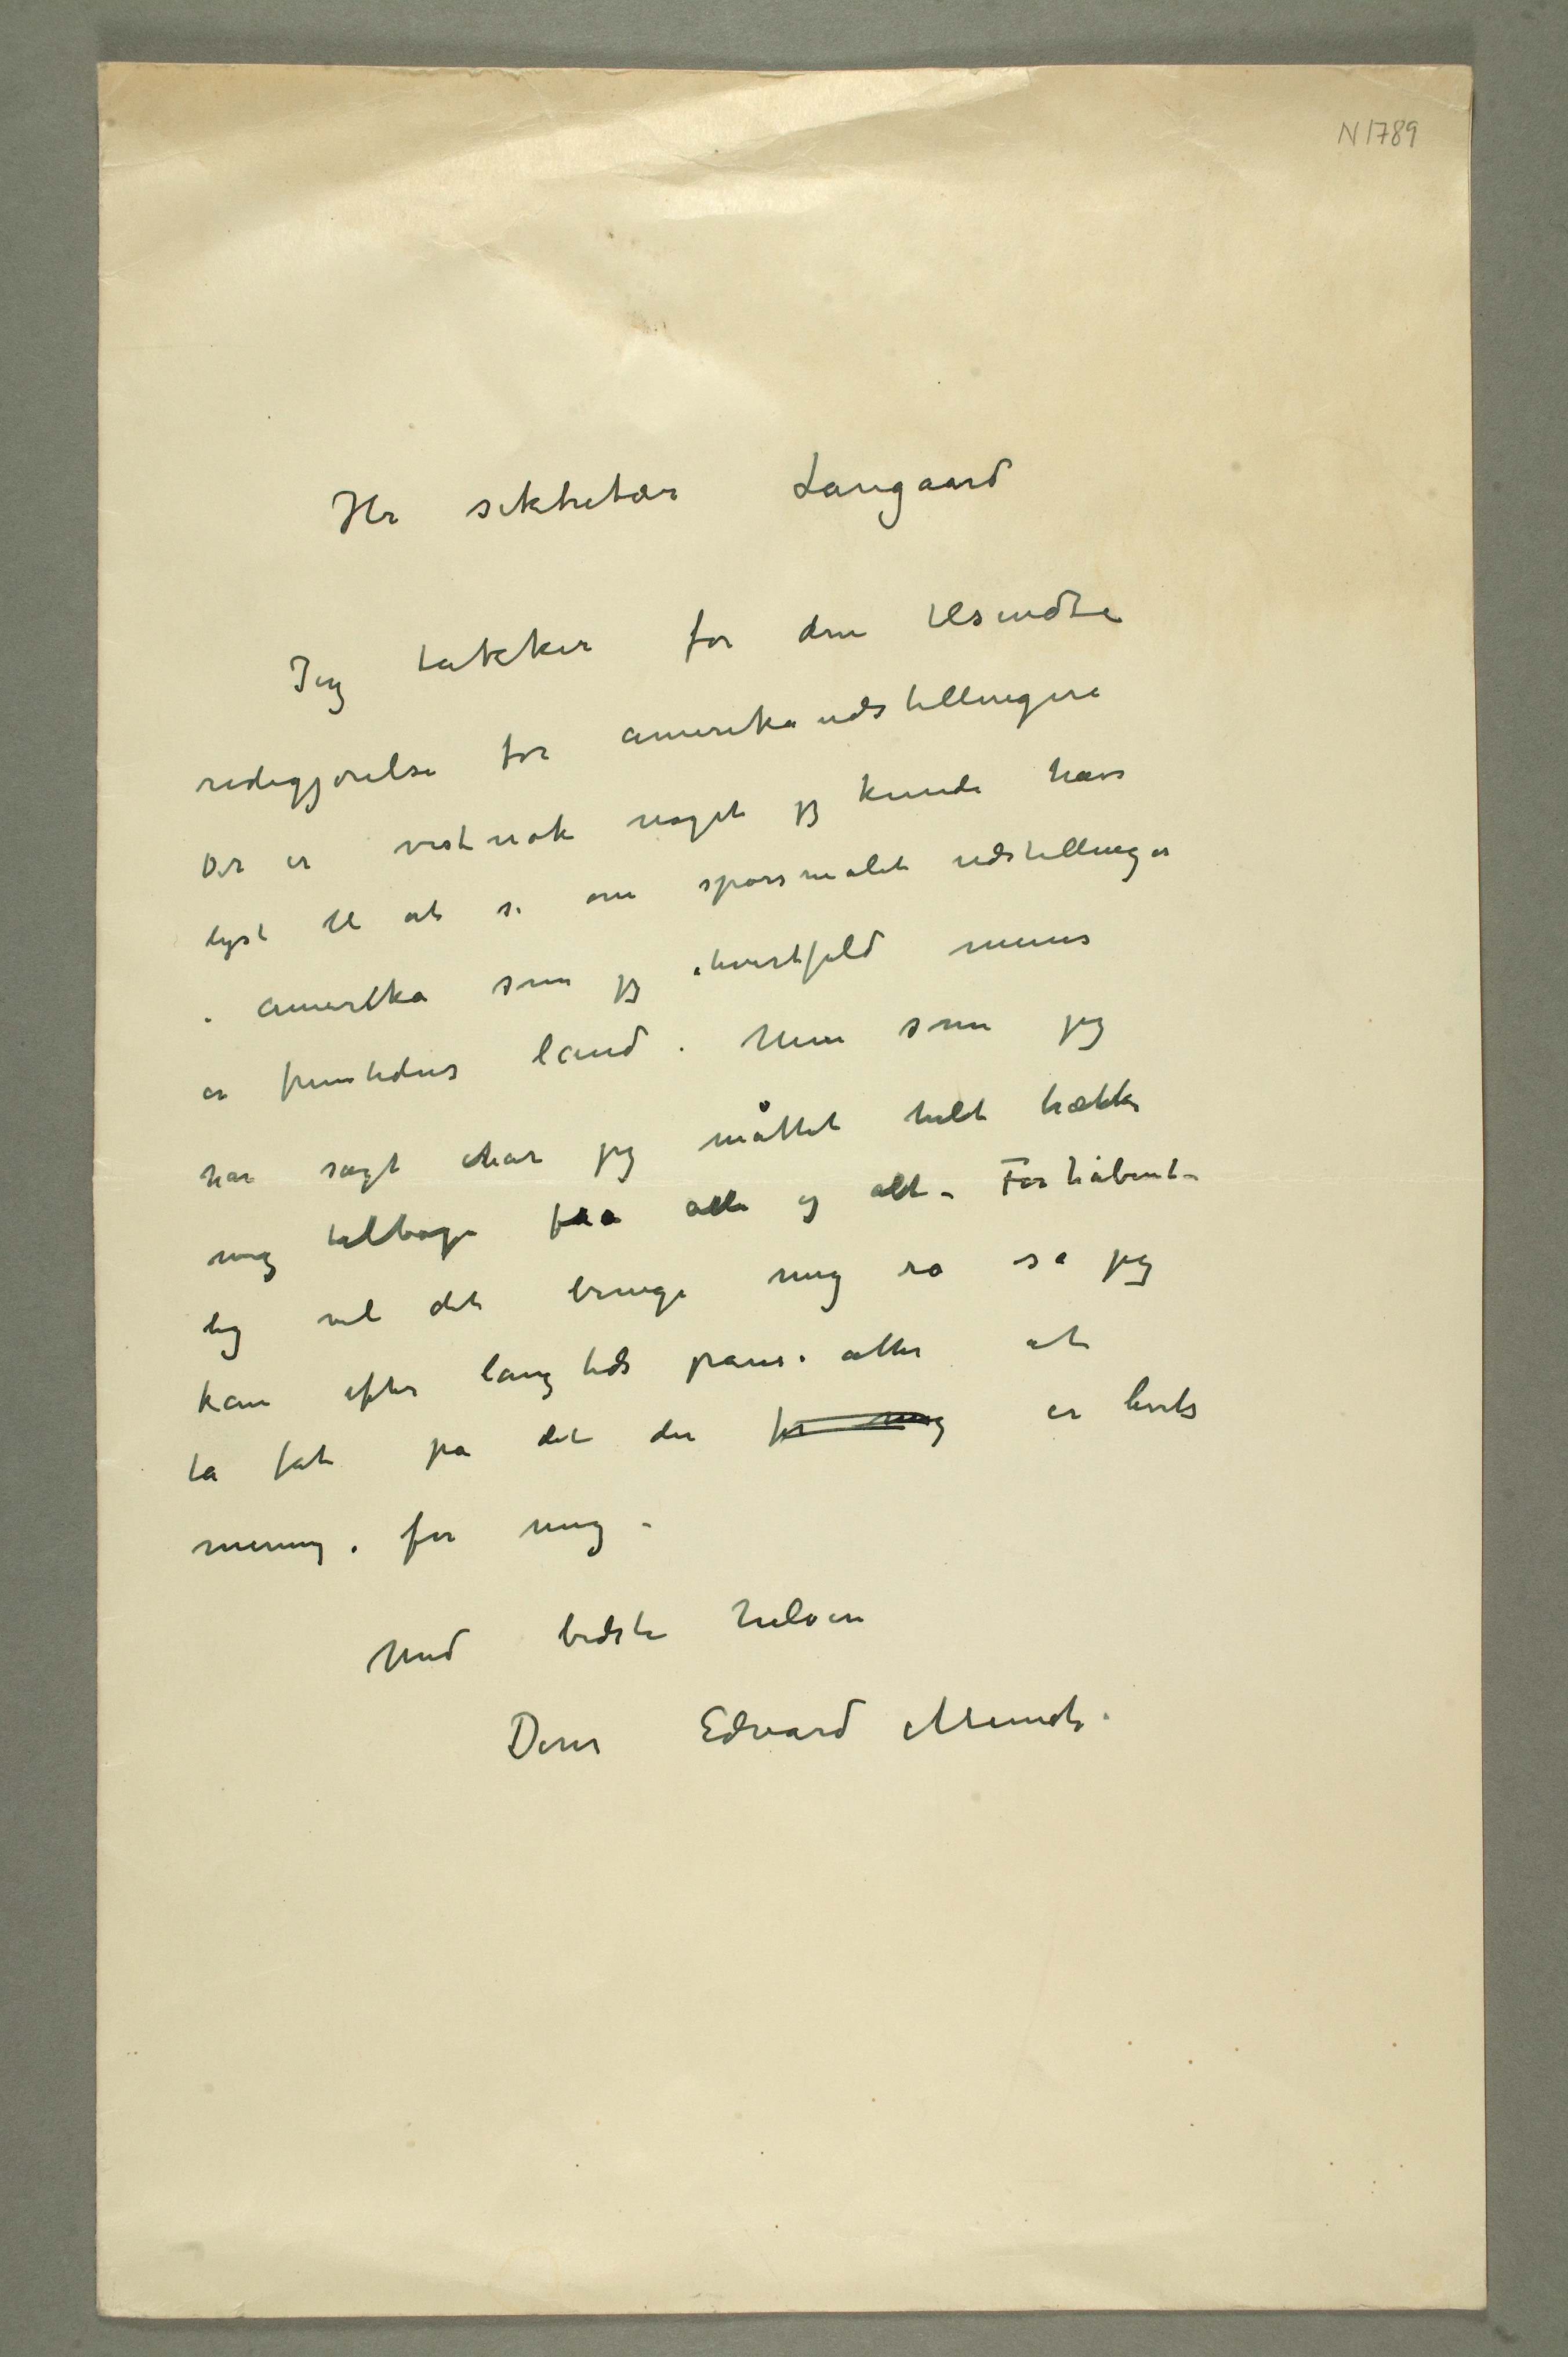 N 1789
Hr sekretær Langaard
Jeg takker for den tilsendte
redegjørelse for amerikaudstillingene
Det er vistnok noget jeg kunde have
lyst til at si om spørsmålet udstillinger
i amerika som jeg ihvertfald menes
er fremtidens land. Men som jeg
har sagt har jeg måttet helt trække
mig tilbage fra alle og alt – Forhåbent-
lig vil det bringe mig ro så jeg
kan efter lang tids pause atter at
ta fat på det der for mig er livets
mening. for mig –
Med bedste hilsen
Deres Edvard Munch